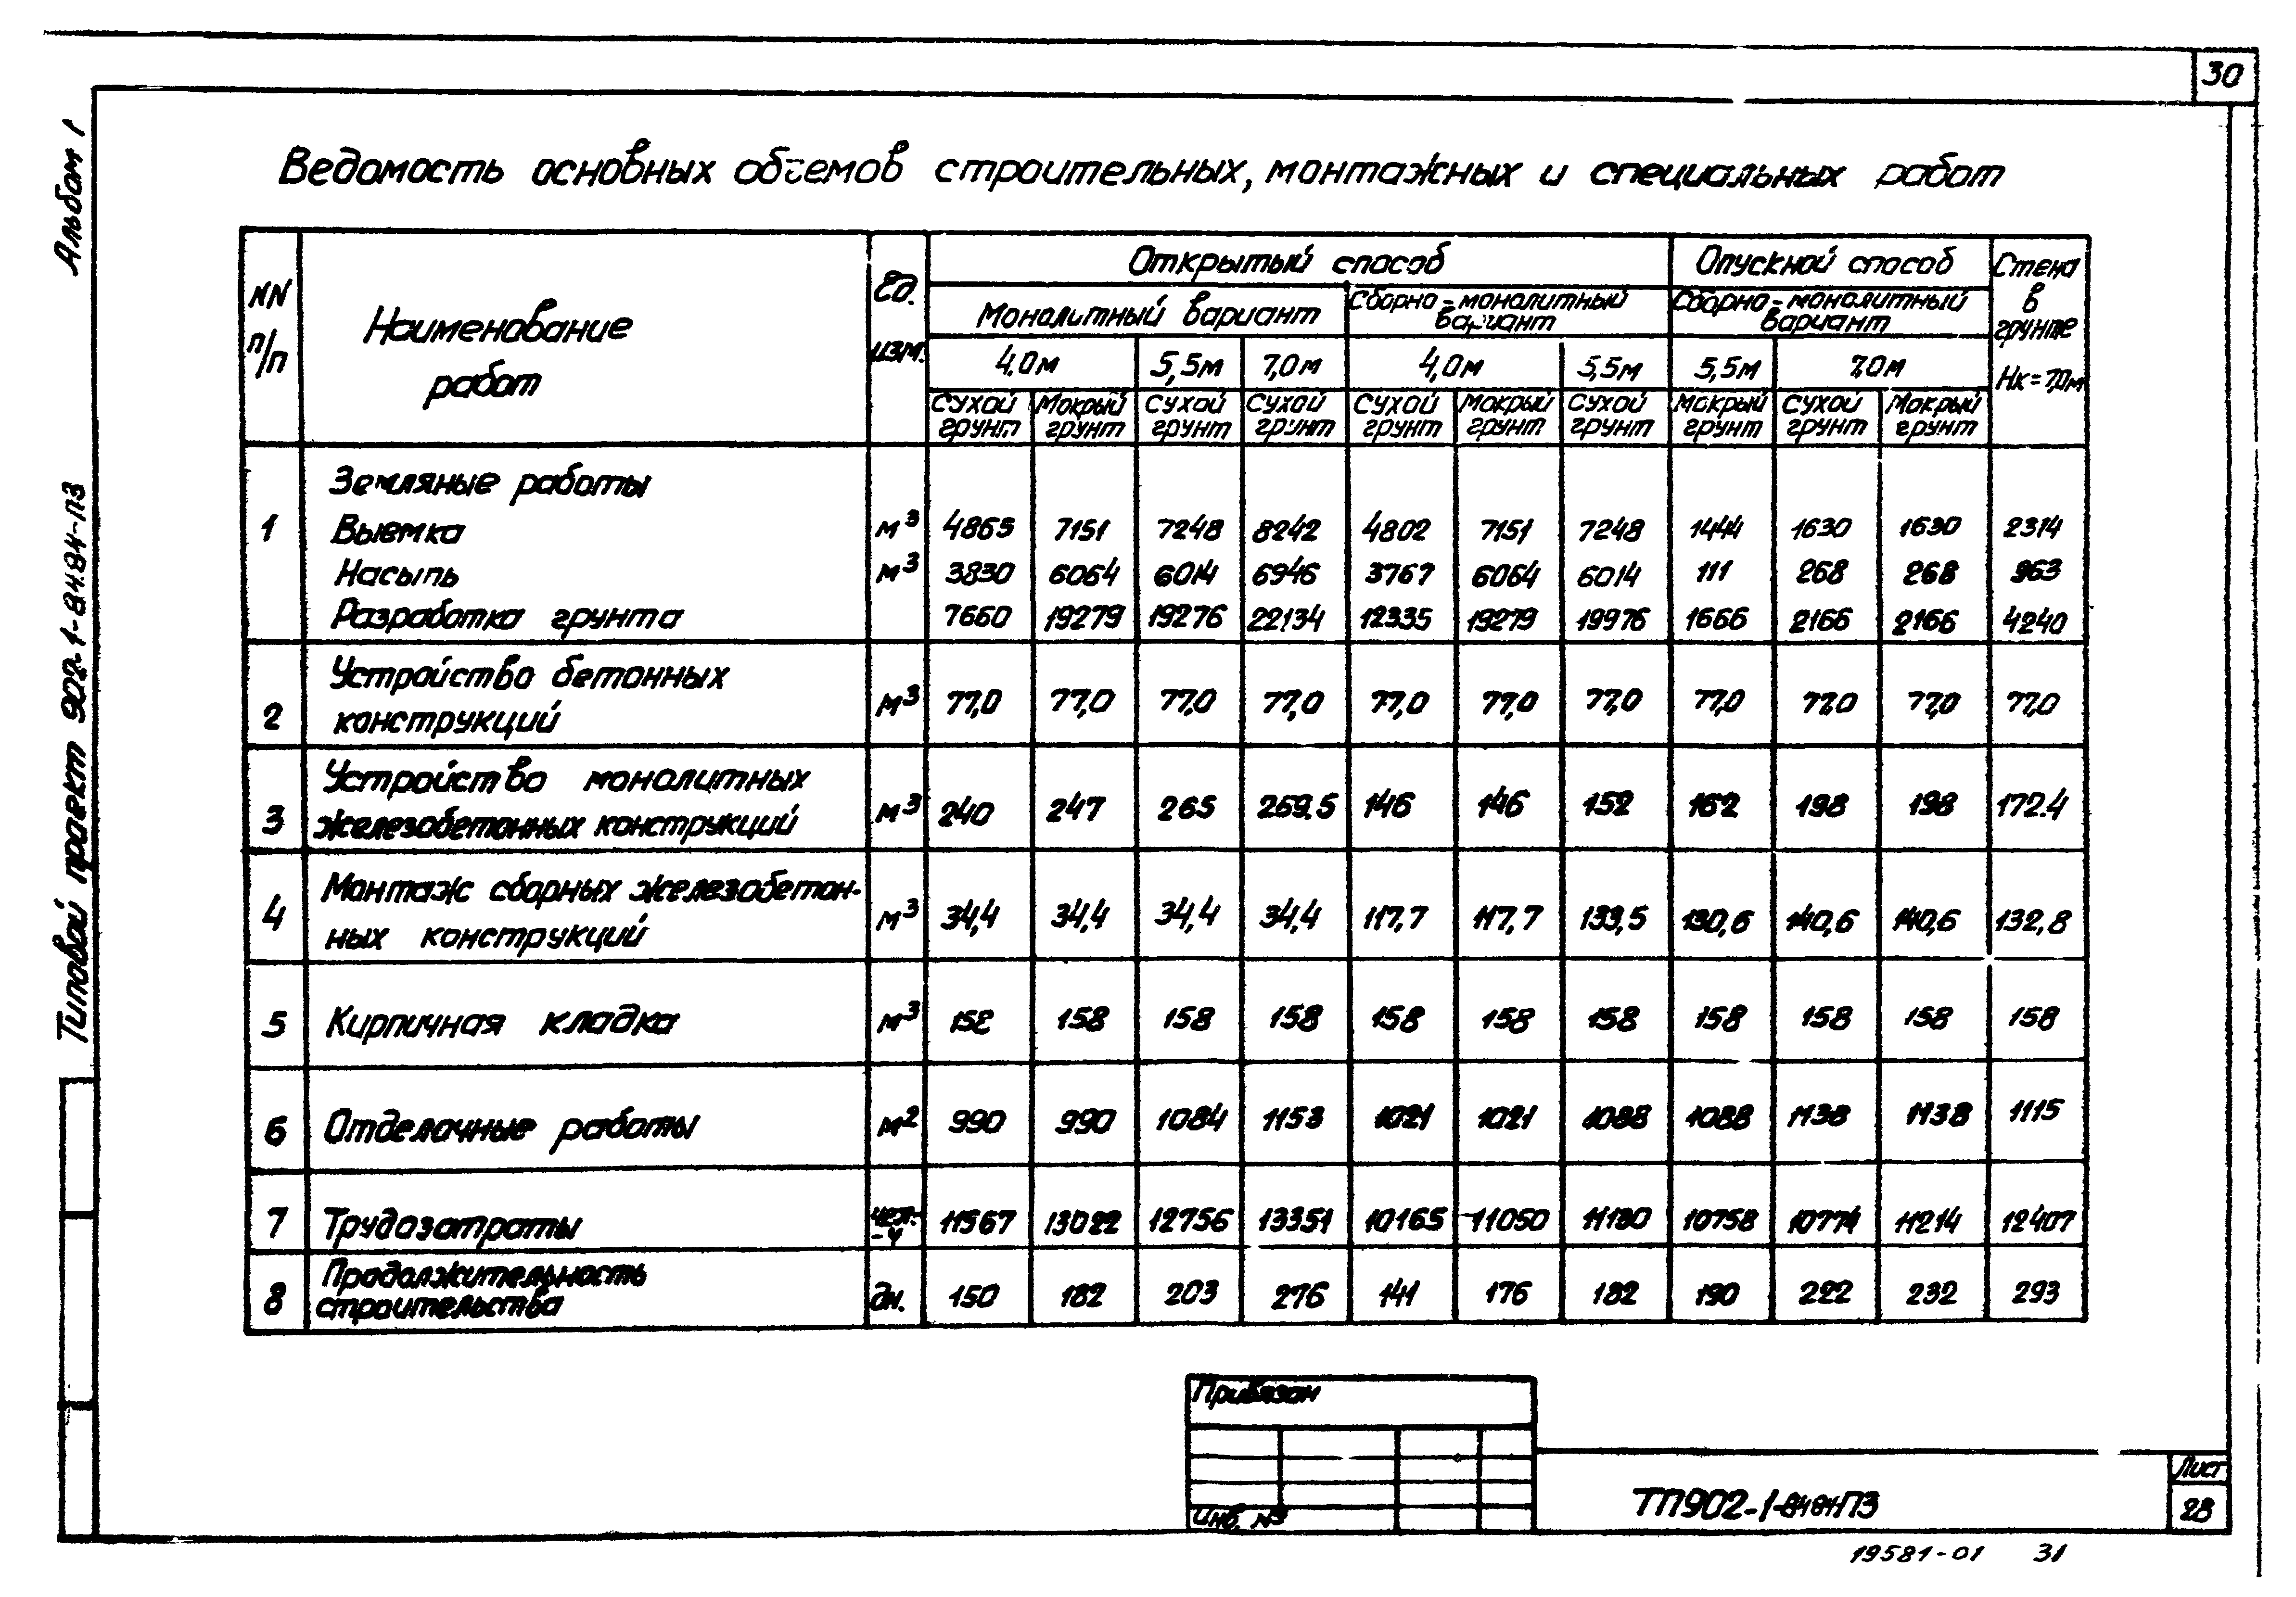 30
Альбом 1
Типовой проект 902-1-84.84-ПЗ
Ведомость основных объемов строительных, монтажных и специальных работ
NN п/п
Наименование работ
Ед. изм.
Открытый способ
Опускной способ
Стена в грунте Нк=7,0м
Монолитный вариант
Сборно-монолитный вариант
Сборно-монолитный вариант
4,0м 5,5м 7,0м 4,0м 5,5м 5,5м 7,0м
Сухой грунт Мокрый грунт Сухой грунт Сухой грунт Сухой грунт Мокрый грунт Сухой грунт Мокрый грунт Сухой грунт Мокрый грунт
Земляные работы
1 Выемка м³ 4865 7151 7248 8242 4802 7151 7248 1444 1630 1630 2314
Насыпь м³ 3830 6064 6014 6946 3767 6064 6014 111 268 268 963
Разработка грунта 7660 19279 19276 22134 12335 19279 19976 1666 2166 2166 4240
2 Устройство бетонных конструкций м³ 77,0 77,0 77,0 77,0 77,0 77,0 77,0 77,0 77,0 77,0 77,0
3 Устройство монолитных железобетонных конструкций м³ 240 247 265 269.5 146 146 152 162 198 198 172.4
4 Монтаж сборных железобетон-
ных конструкций м³ 34,4 34,4 34,4 34,4 117,7 117,7 133,5 130,6 140,6 140,6 132,8
5 Кирпичная кладка м³ 158 158 158 158 158 158 158 158 158 158 158
6 Отделочные работы м² 990 990 1084 1153 1021 1021 1088 1088 1138 1138 1115
7 Трудозатраты чел.-ч 11567 13022 12756 13351 10165 11050 11130 10758 10774 11214 12407
8 Продолжительность строительства дн. 150 182 203 276 141 176 182 190 222 232 293
Привязан
Инв. №
ТП902-1-84.84-ПЗ
Лист
28
19581-01 31